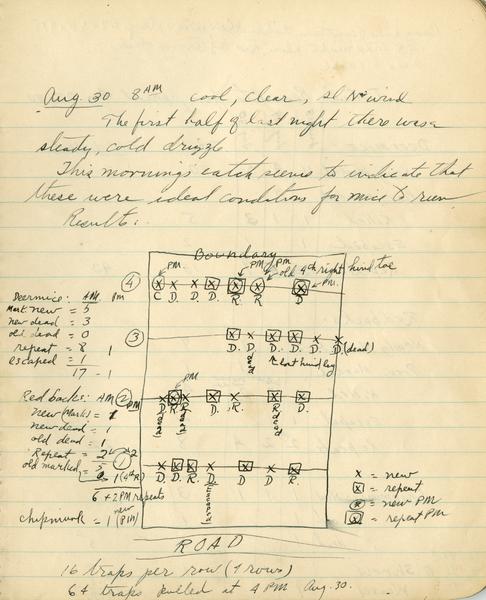 Aug 30 8 AM cool, clear, sl. N wind
The first half of last night there was a
steady, cold drizzle
This morning's catch seems to indicate that
these were ideal conditions for mice to run
Results:
Boundary
PM PM PM old 4th right hind toe
PM
4
C D. D. D. R. R D
Deermice: AM PM
Mark new = 5
new dead = 3
old dead = 0
repeat = 8 1
escaped = 1
17 - 1
3
D. D. D. D. D. D (dead)
lost hind leg
Red backs: AM PM
new (marks) =
new dead = 1
old dead = 1
Repeat = 2 2
old marked
6 + 2 PM repeats
new
chipmunk = 1 (PM)
2
PM
D R. R D. R. R D.
1
D. D. R. D D D R.
x = new
x = repeat
x = new PM
x = repeat PM
ROAD
16 traps per row (4 rows)
64 traps pulled at 4 PM Aug. 30.